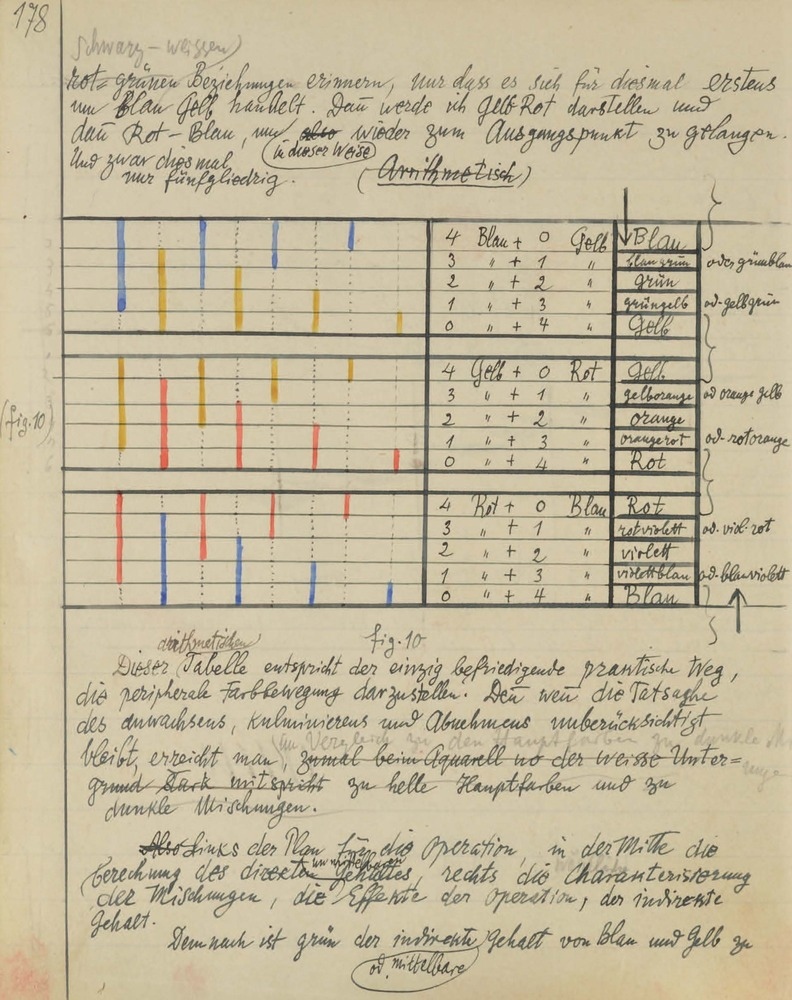 178
schwarz-weissen)
rot-grünen Beziehungen erinnern, nur dass es sich für diesmal erstens
um Blau Gelb handelt. Dañ werde ich Gelb-Rot darstellen und
dañ Rot-Blau, um also wieder zum Ausgangspunkt zu gelangen.
in dieser Weise
Und zwar diesmal
nur fünfgliedrig. (Arithmetisch)
4 Blau + 0 Gelb Blau
3 " + 1 " blaugrün oder grünblau
2 " + 2 " grün
1 " + 3 " grüngelb od. gelbgrün
0 " + 4 " Gelb
4 Gelb + 0 Rot Gelb
3 " + 1 " gelborange od orangegelb
2 " + 2 " orange
(fig. 10)
1 " + 3 " orangerot od. rotorange
0 " + 4 " Rot
4 Rot + 0 Blau Rot
3 " + 1 " rotviolett od. viol-rot
2 " + 2 " violett
1 " + 3 " violettblau od. blauviolett
0 " + 4 " Blau
fig. 10
arithmetischen
Dieser Tabelle entspricht der einzig befriedigende praktische Weg,
die peripherale Farbbewegung darzustellen. Deñ weñ die Tatsache
des anwachsens, kulminierens und Abnehmens unberücksichtigt
im Vergleich zu den Hauptfarben zu dunkle
bleibt, erreicht man, zumal beim Aquarell wo der weisse Unter=
grund stark mitspricht zu helle Hauptfarben und zu
dunkle Mischungen.
Also links der Plan für die Operation, in der Mitte die
unmittelbaren
Berechnung des direkten Gehaltes, rechts die Charakterisierung
der Mischungen, die Effekte der Operation, der indirekte
Gehalt.
Demnach ist grün der indirekte Gehalt von Blau und Gelb zu
od. mittelbare